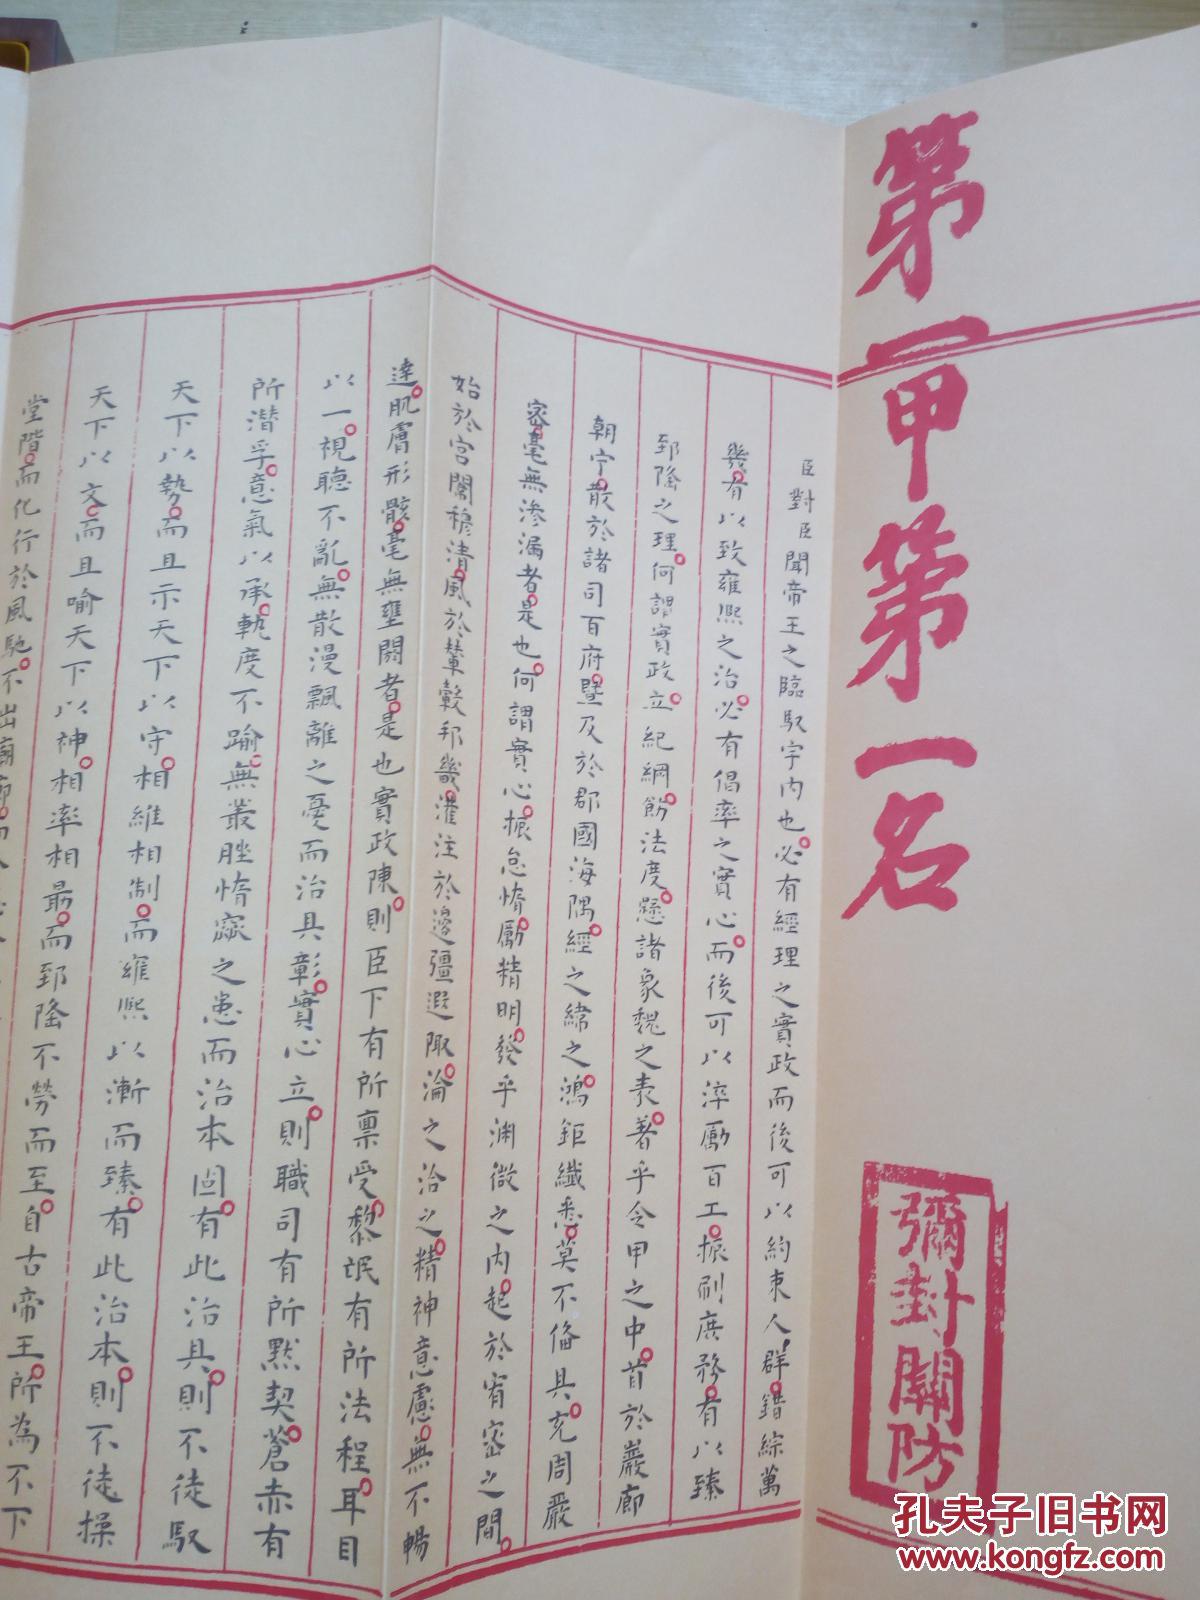 第一甲第一名
彌封關防
臣對臣聞帝王之臨馭宇內也必有經理之實政而後可以約束人群錯綜萬
幾有以致雍熙之治必有倡率之實心而後可以淬勵百工振刷庶務有以臻
郅隆之理何謂實政立紀綱飭法度懸諸象魏之表著乎令甲之中首於巖廊
朝宁散於諸司百府暨及於郡國海隅經之緯之鴻鉅纖悉莫不備具充周嚴
密毫無滲漏者是也何謂實心振怠惰勵精明發乎淵微之內起於宥密之間
始於宮闈穆清風於輦轂邦畿灌注於邊疆遐陬淪之洽之精神意慮無不暢
達肌膚形骸毫無壅閼者是也實政陳則臣下有所禀受黎氓有所法程耳目
以一視聽不亂無散漫飄離之憂而治具彰實心立則職司有所默契蒼赤有
所潛孚意氣以承軌度不踰無叢脞惰窳之患而治本固有此治具則不徒馭
天下以勢而且示天下以守相維相制而雍熙以漸而臻有此治本則不徒操
天下以文而且喻天下以神相率相最而郅隆不勞而至自古帝王所為不下
堂階而化行於風馳不出廟廊而
孔夫子旧书网
www.kongfz.com